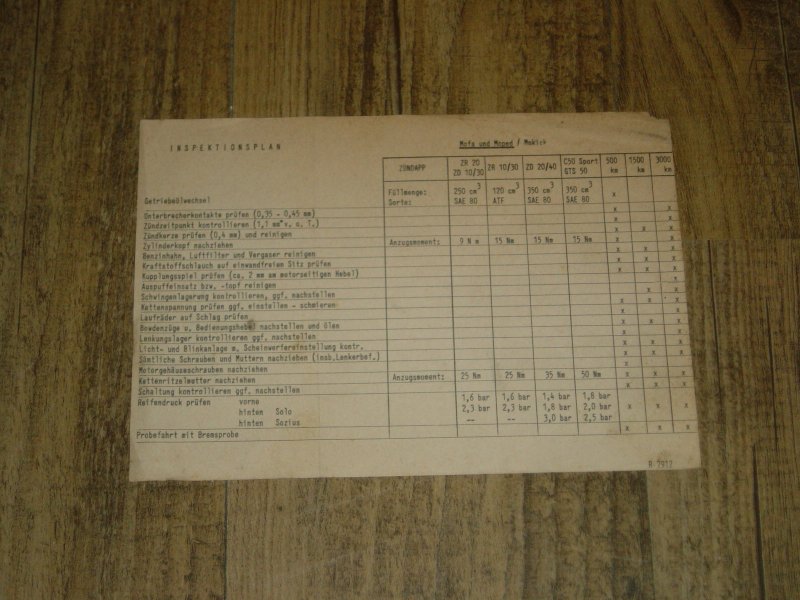 INSPEKTIONSPLAN
Mofa und Moped / Mokick
ZÜNDAPP ZR 20 ZD 10/30 ZR 10/30 ZD 20/40 C50 Sport GTS 50 500 km 1500 km 3000 km
Getriebeölwechsel Füllmenge: 250 cm³ 120 cm³ 350 cm³ 350 cm³ x
Sorte: SAE 80 ATF SAE 80 SAE 80
Unterbrecherkontakte prüfen (0,35 - 0,45 mm) x x
Zündzeitpunkt kontrollieren (1,1 mm v. o. T.) x x
Zündkerze prüfen (0,4 mm) und reinigen x x x
Zylinderkopf nachziehen Anzugsmoment: 9 Nm 15 Nm 15 Nm 15 Nm x x
Benzinhahn, Luftfilter und Vergaser reinigen x x x
Kraftstoffschlauch auf einwandfreien Sitz prüfen x x x
Kupplungsspiel prüfen (ca. 2 mm am motorseitigen Hebel) x x x
Auspuffeinsatz bzw. -topf reinigen x
Schwingenlagerung kontrollieren, ggf. nachstellen x x
Kettenspannung prüfen ggf. einstellen - schmieren x x x
Laufräder auf Schlag prüfen x x
Bowdenzüge u. Bedienungshebel nachstellen und ölen x x x
Lenkungslager kontrollieren ggf. nachstellen x x
Licht- und Blinkanlage m. Scheinwerfereinstellung kontr. x x x
Sämtliche Schrauben und Muttern nachziehen (insb.Lenkerbef.) x x x
Motorgehäuseschrauben nachziehen x
Kettenritzelmutter nachziehen Anzugsmoment: 25 Nm 25 Nm 35 Nm 50 Nm x x x
Schaltung kontrollieren ggf. nachstellen x x x
Reifendruck prüfen vorne 1,6 bar 1,6 bar 1,4 bar 1,8 bar
hinten Solo 2,3 bar 2,3 bar 1,8 bar 2,0 bar x x x
hinten Sozius -- -- 3,0 bar 2,5 bar
Probefahrt mit Bremsprobe x x x
R 2912